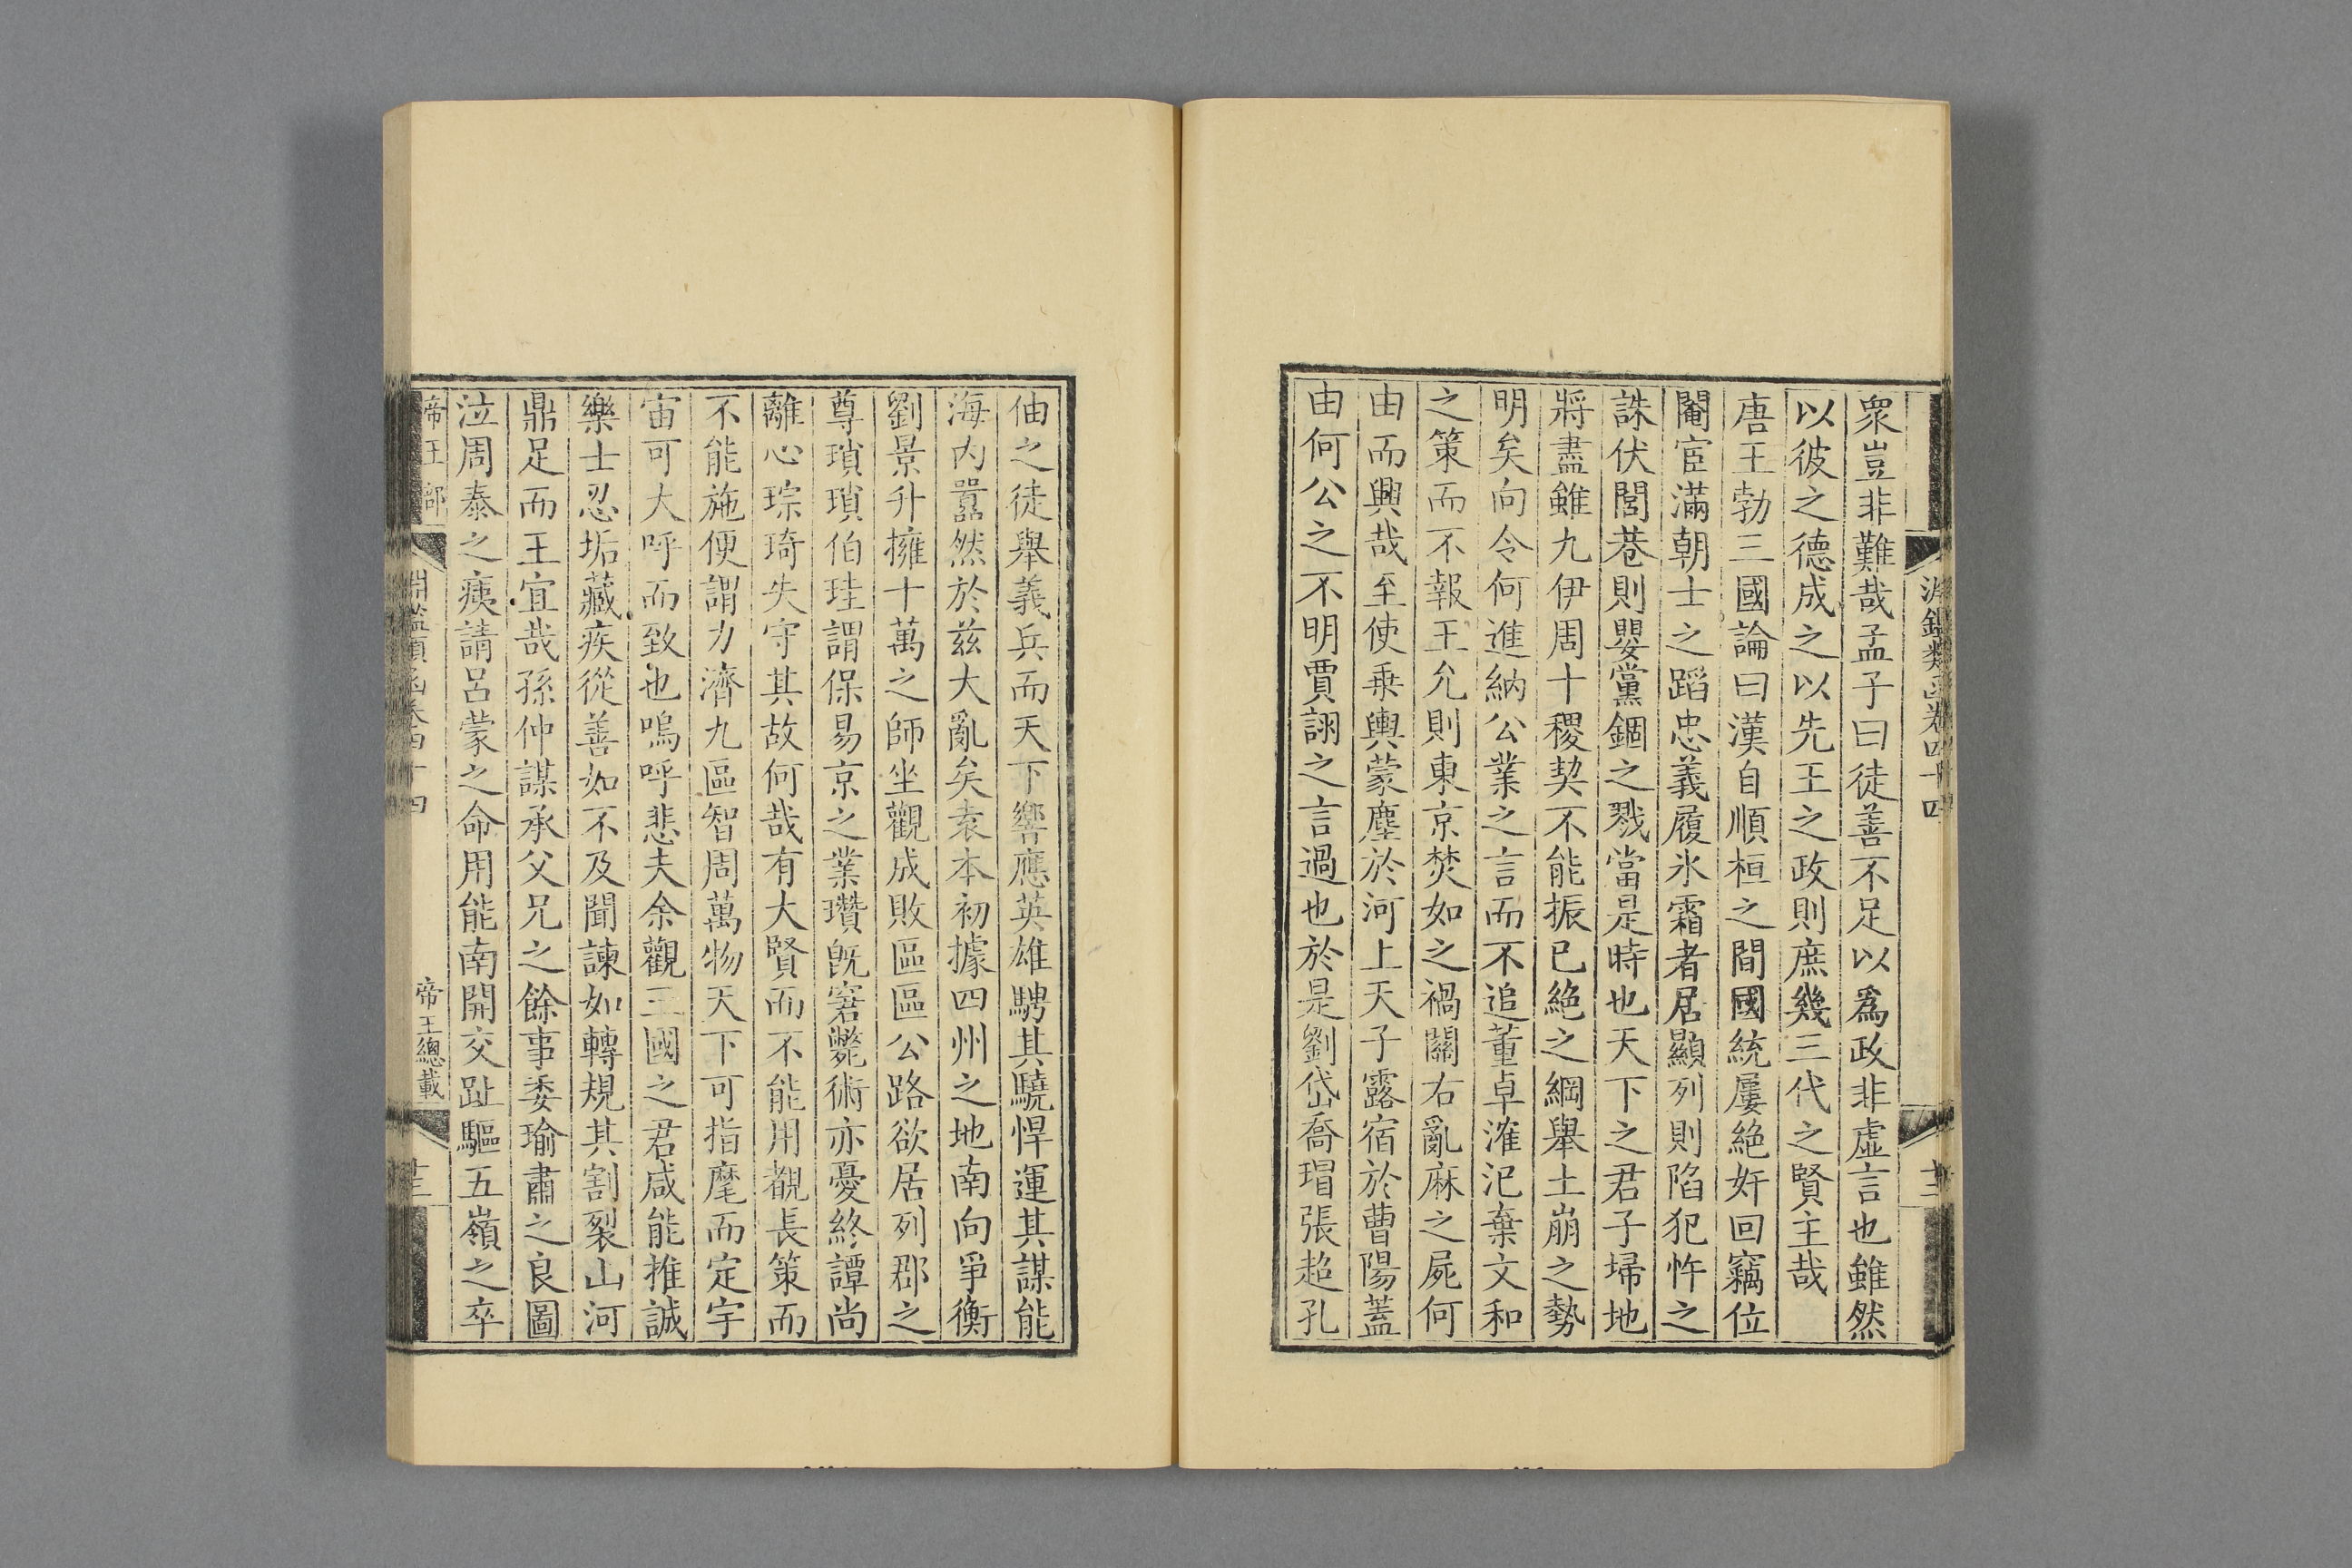 淵鑑類函卷四十四
衆豈非難哉孟子曰徒善不足以爲政非虛言也雖然
以彼之德成之以先王之政則庶幾三代之賢主哉
唐王勃三國論曰漢自順桓之間國統屢絶奸回竊位
閹宦滿朝士之蹈忠義履氷霜者居顯列則陷犯忤之
誅伏閭巷則嬰黨錮之戮當是時也天下之君子埽地
將盡雖九伊周十稷契不能振已絶之綱舉土崩之勢
明矣向令何進納公業之言而不追董卓漼汜棄文和
之策而不報王允則東京焚如之禍關右亂麻之屍何
由而興哉至使乗輿蒙塵於河上天子露宿於曹陽蓋
由何公之不明賈詡之言過也於是劉岱喬瑁張超孔
伷之徒舉義兵而天下響應英雄騁其驍悍運其謀能
海内囂然於兹大亂矣袁本初據四州之地南向爭衡
劉景升擁十萬之師坐觀成敗區區公路欲居列郡之
尊瑣瑣伯珪謂保易京之業瓚旣窘斃術亦憂終譚尚
離心琮琦失守其故何哉有大賢而不能用覩長策而
不能施便謂力濟九區智周萬物天下可指麾而定宇
宙可大呼而致也嗚呼悲夫余觀三國之君咸能推誠
樂士忍垢藏疾從善如不及聞諫如轉規其割裂山河
鼎足而王宜哉孫仲謀承父兄之餘事委瑜肅之良圖
泣周泰之痍請呂蒙之命用能南開交趾驅五嶺之卒
帝王部
淵鑑類函卷四十四
帝王總載